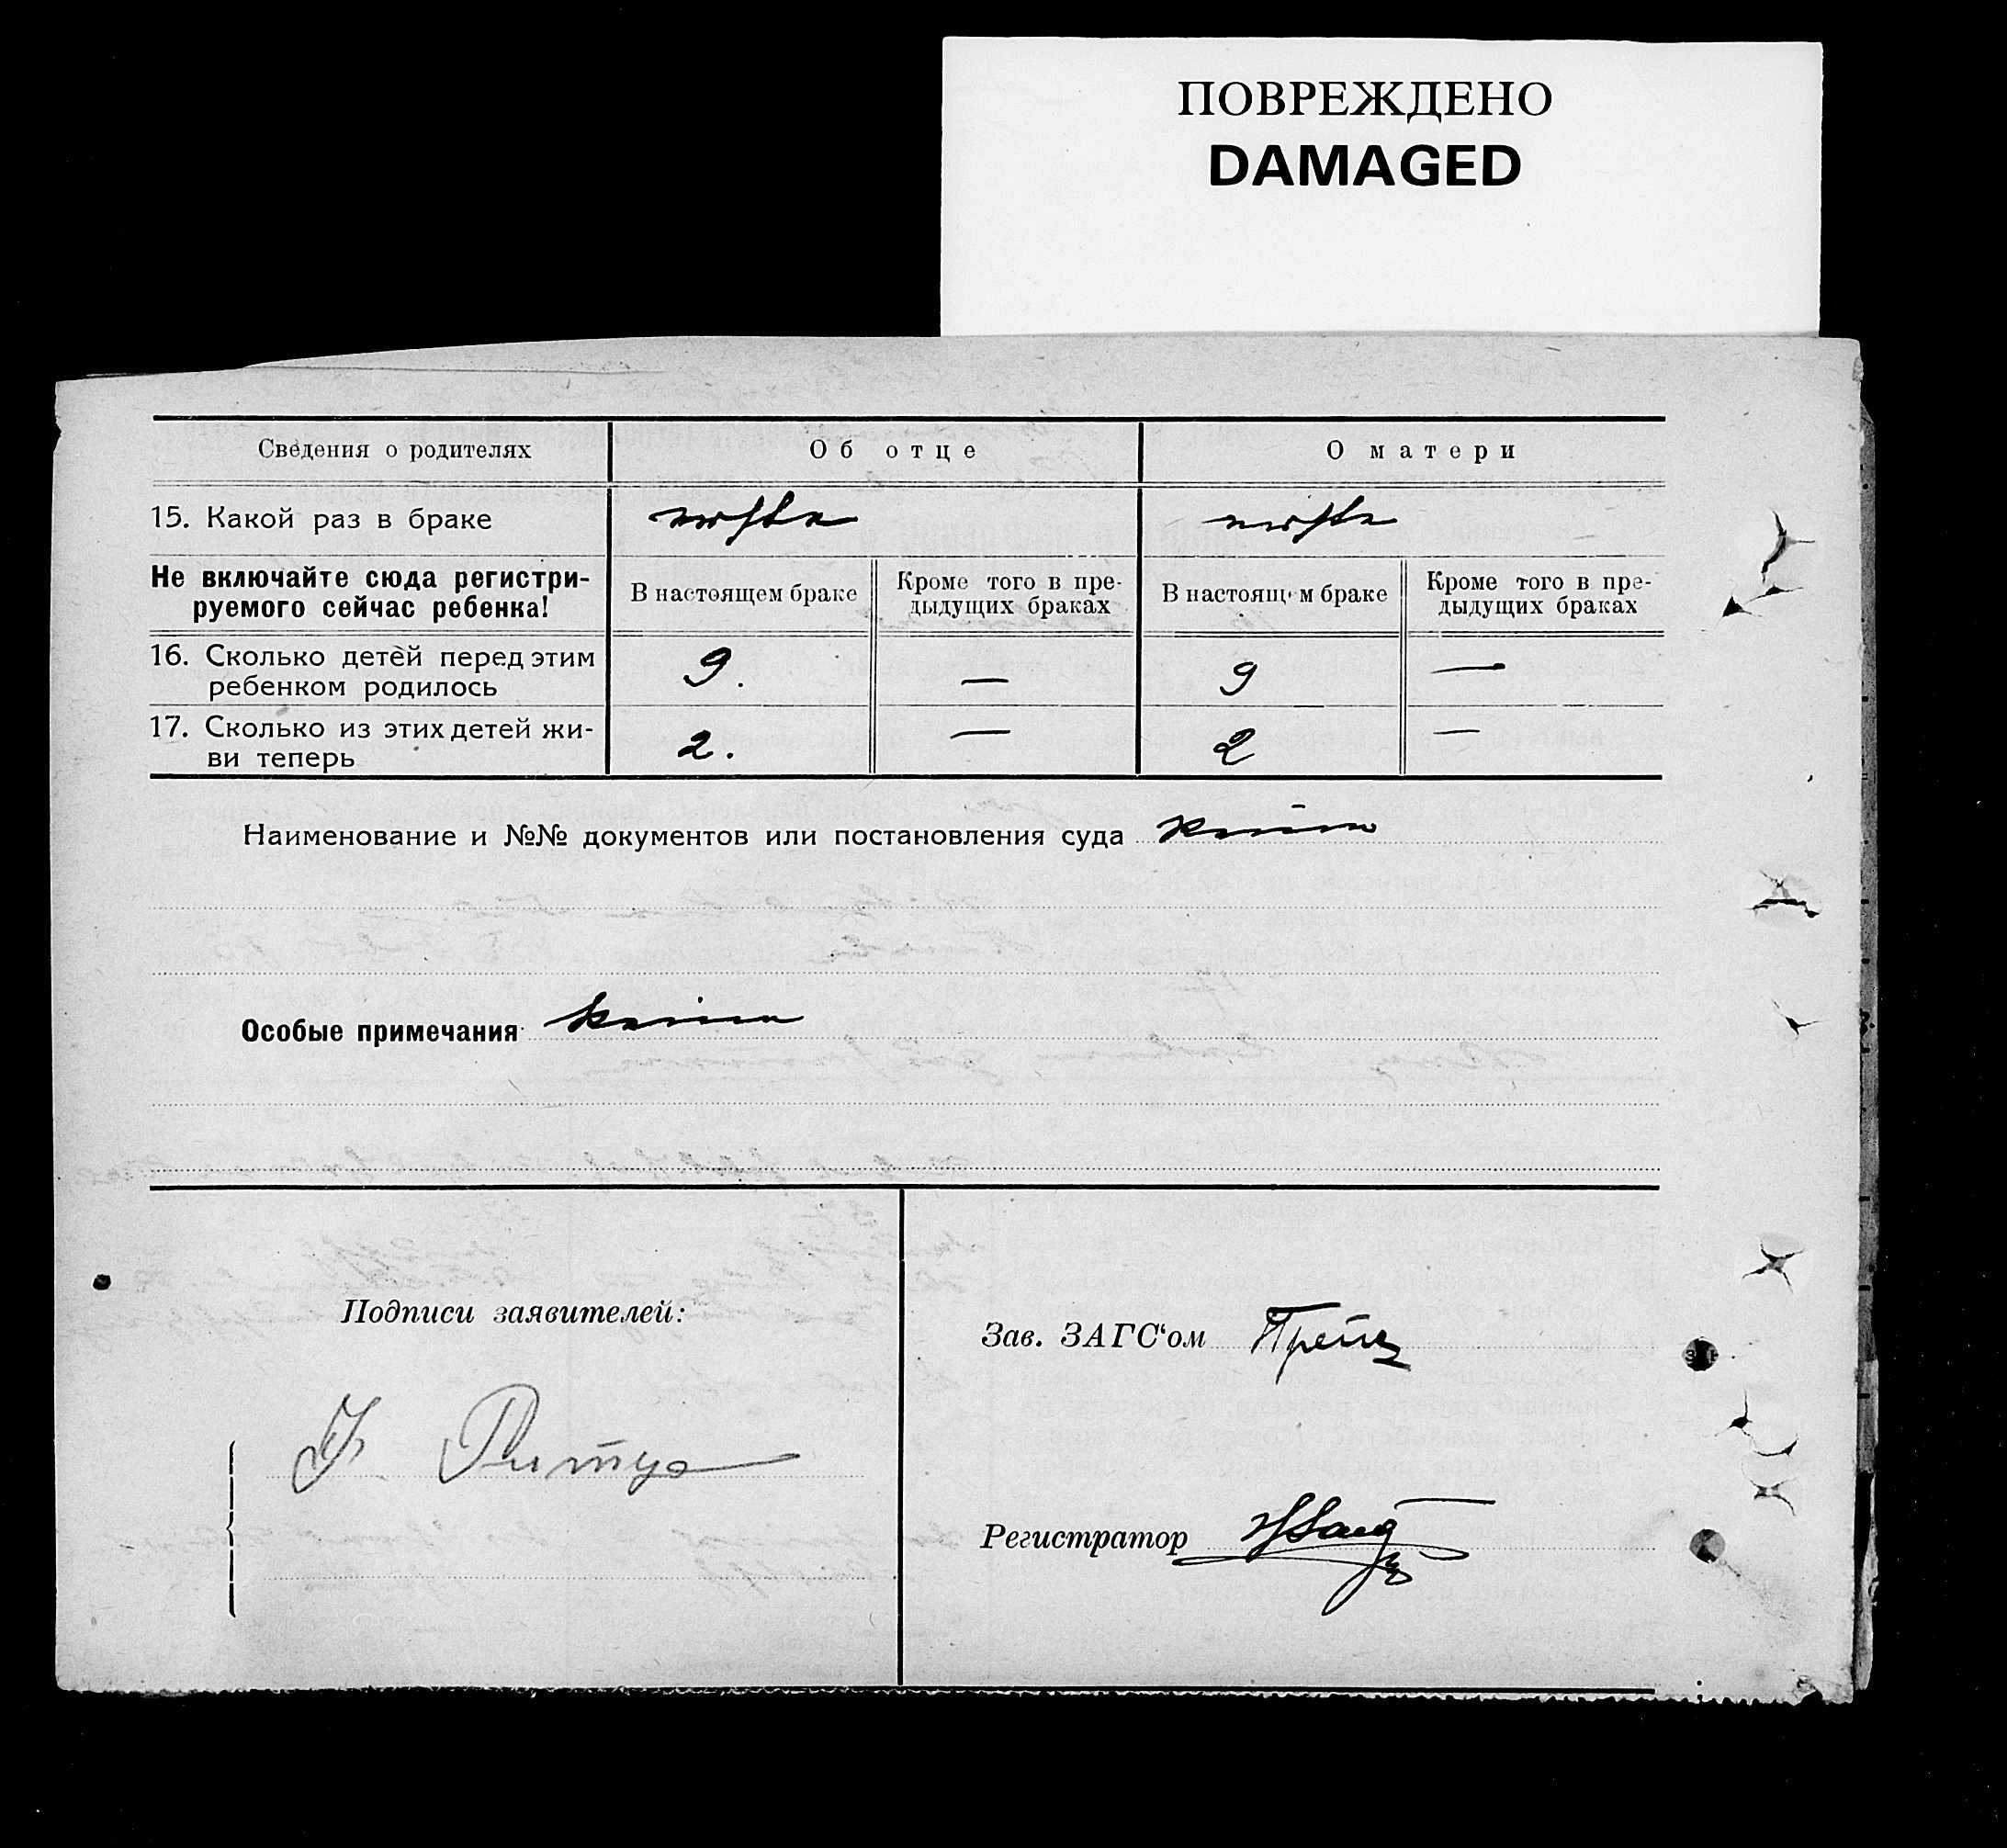 ПОВРЕЖДЕНО
DAMAGED
Сведения о родителях
Об отце
О матери
15. Какой раз в браке
erste
erste
Не включайте сюда регистри-
руемого сейчас ребенка!
В настоящем браке
Кроме того в пре-
дыдущих браках
В настоящем браке
Кроме того в пре-
дыдущих браках
16. Сколько детей перед этим
ребенком родилось
9.
—
9
—
17. Сколько из этих детей жи-
ви теперь
2.
—
2
—
Наименование и №№ документов или постановления суда keine
Особые примечания keine
Подписи заявителей:
Зав. ЗАГС'ом
Регистратор